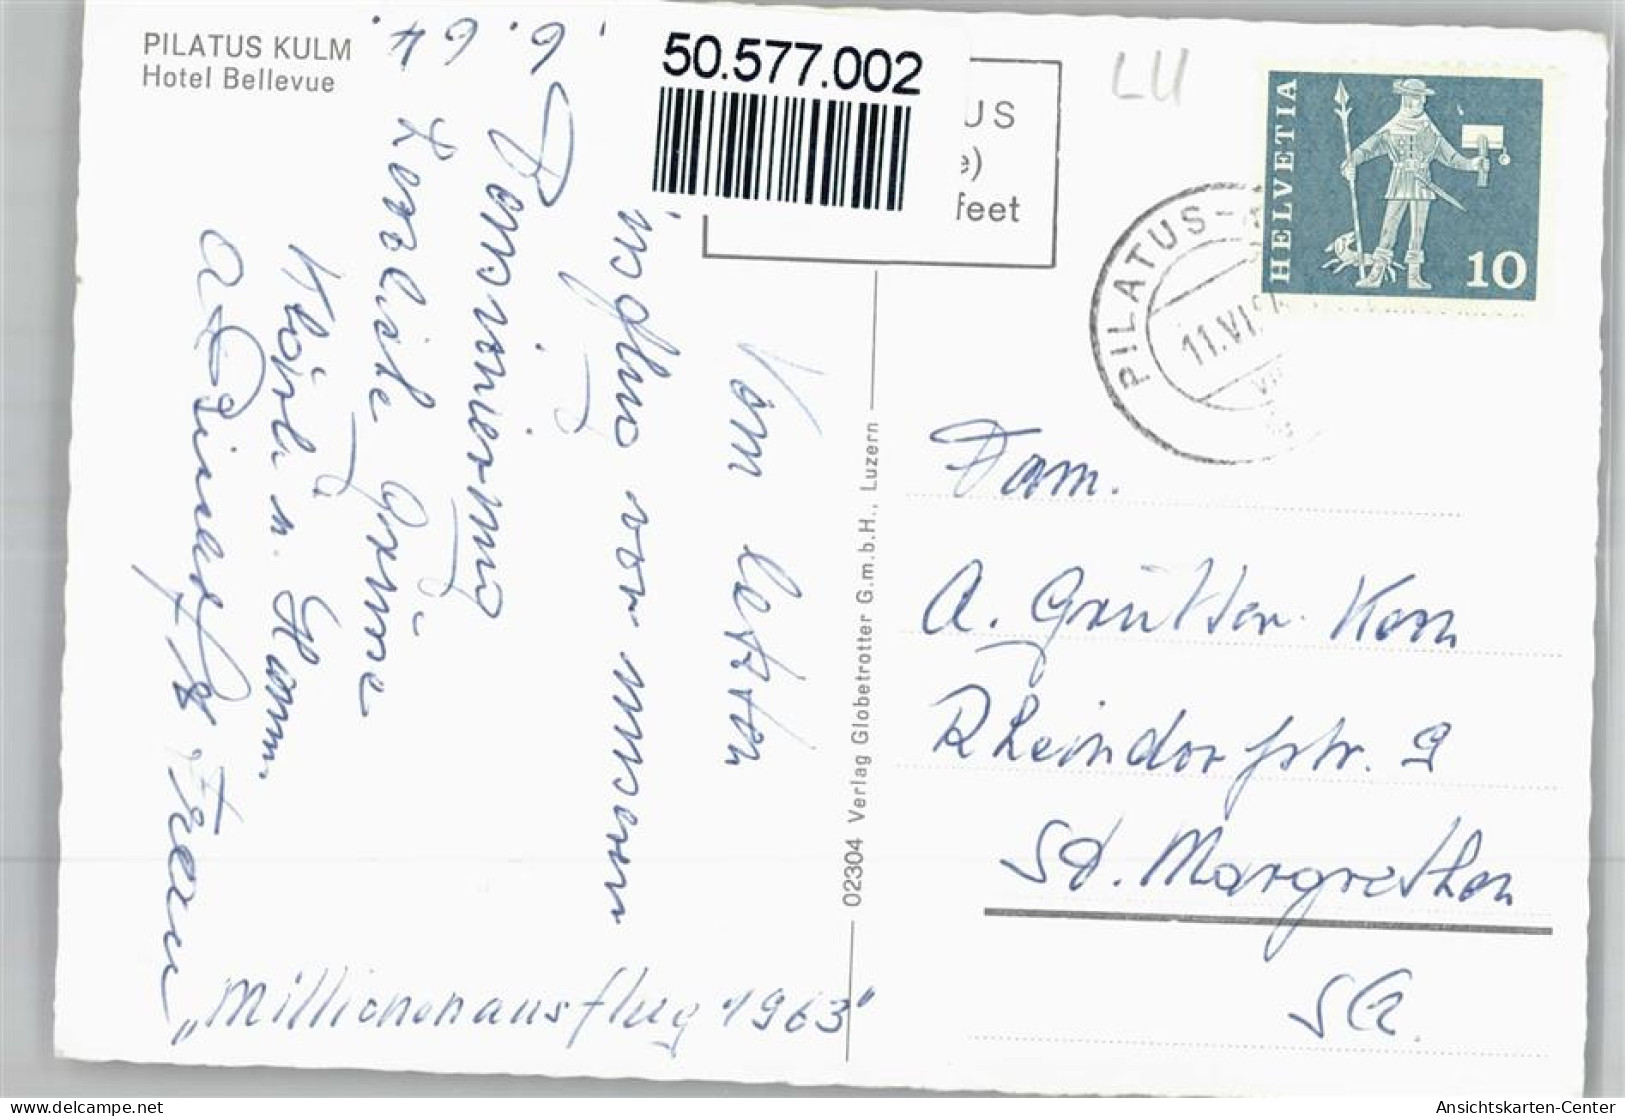 PILATUS KULM
Hotel Bellevue
50.577.002
US
e)
feet
LU
HELVETIA
10
PILATUS-
11.VI
6. 6. 64.
Vom letzten
vor unserem
Pensionierung
Herzliche Grüsse
Klärli u. Hann.
"Millionenausflug 1963"
02304 Verlag Globetrotter G.m.b.H., Luzern
Fam.
A. Grütter-Kern
Rheindorfstr. 9
St. Margrethen
SG.
delcampe.net
Ansichtskarten-Center